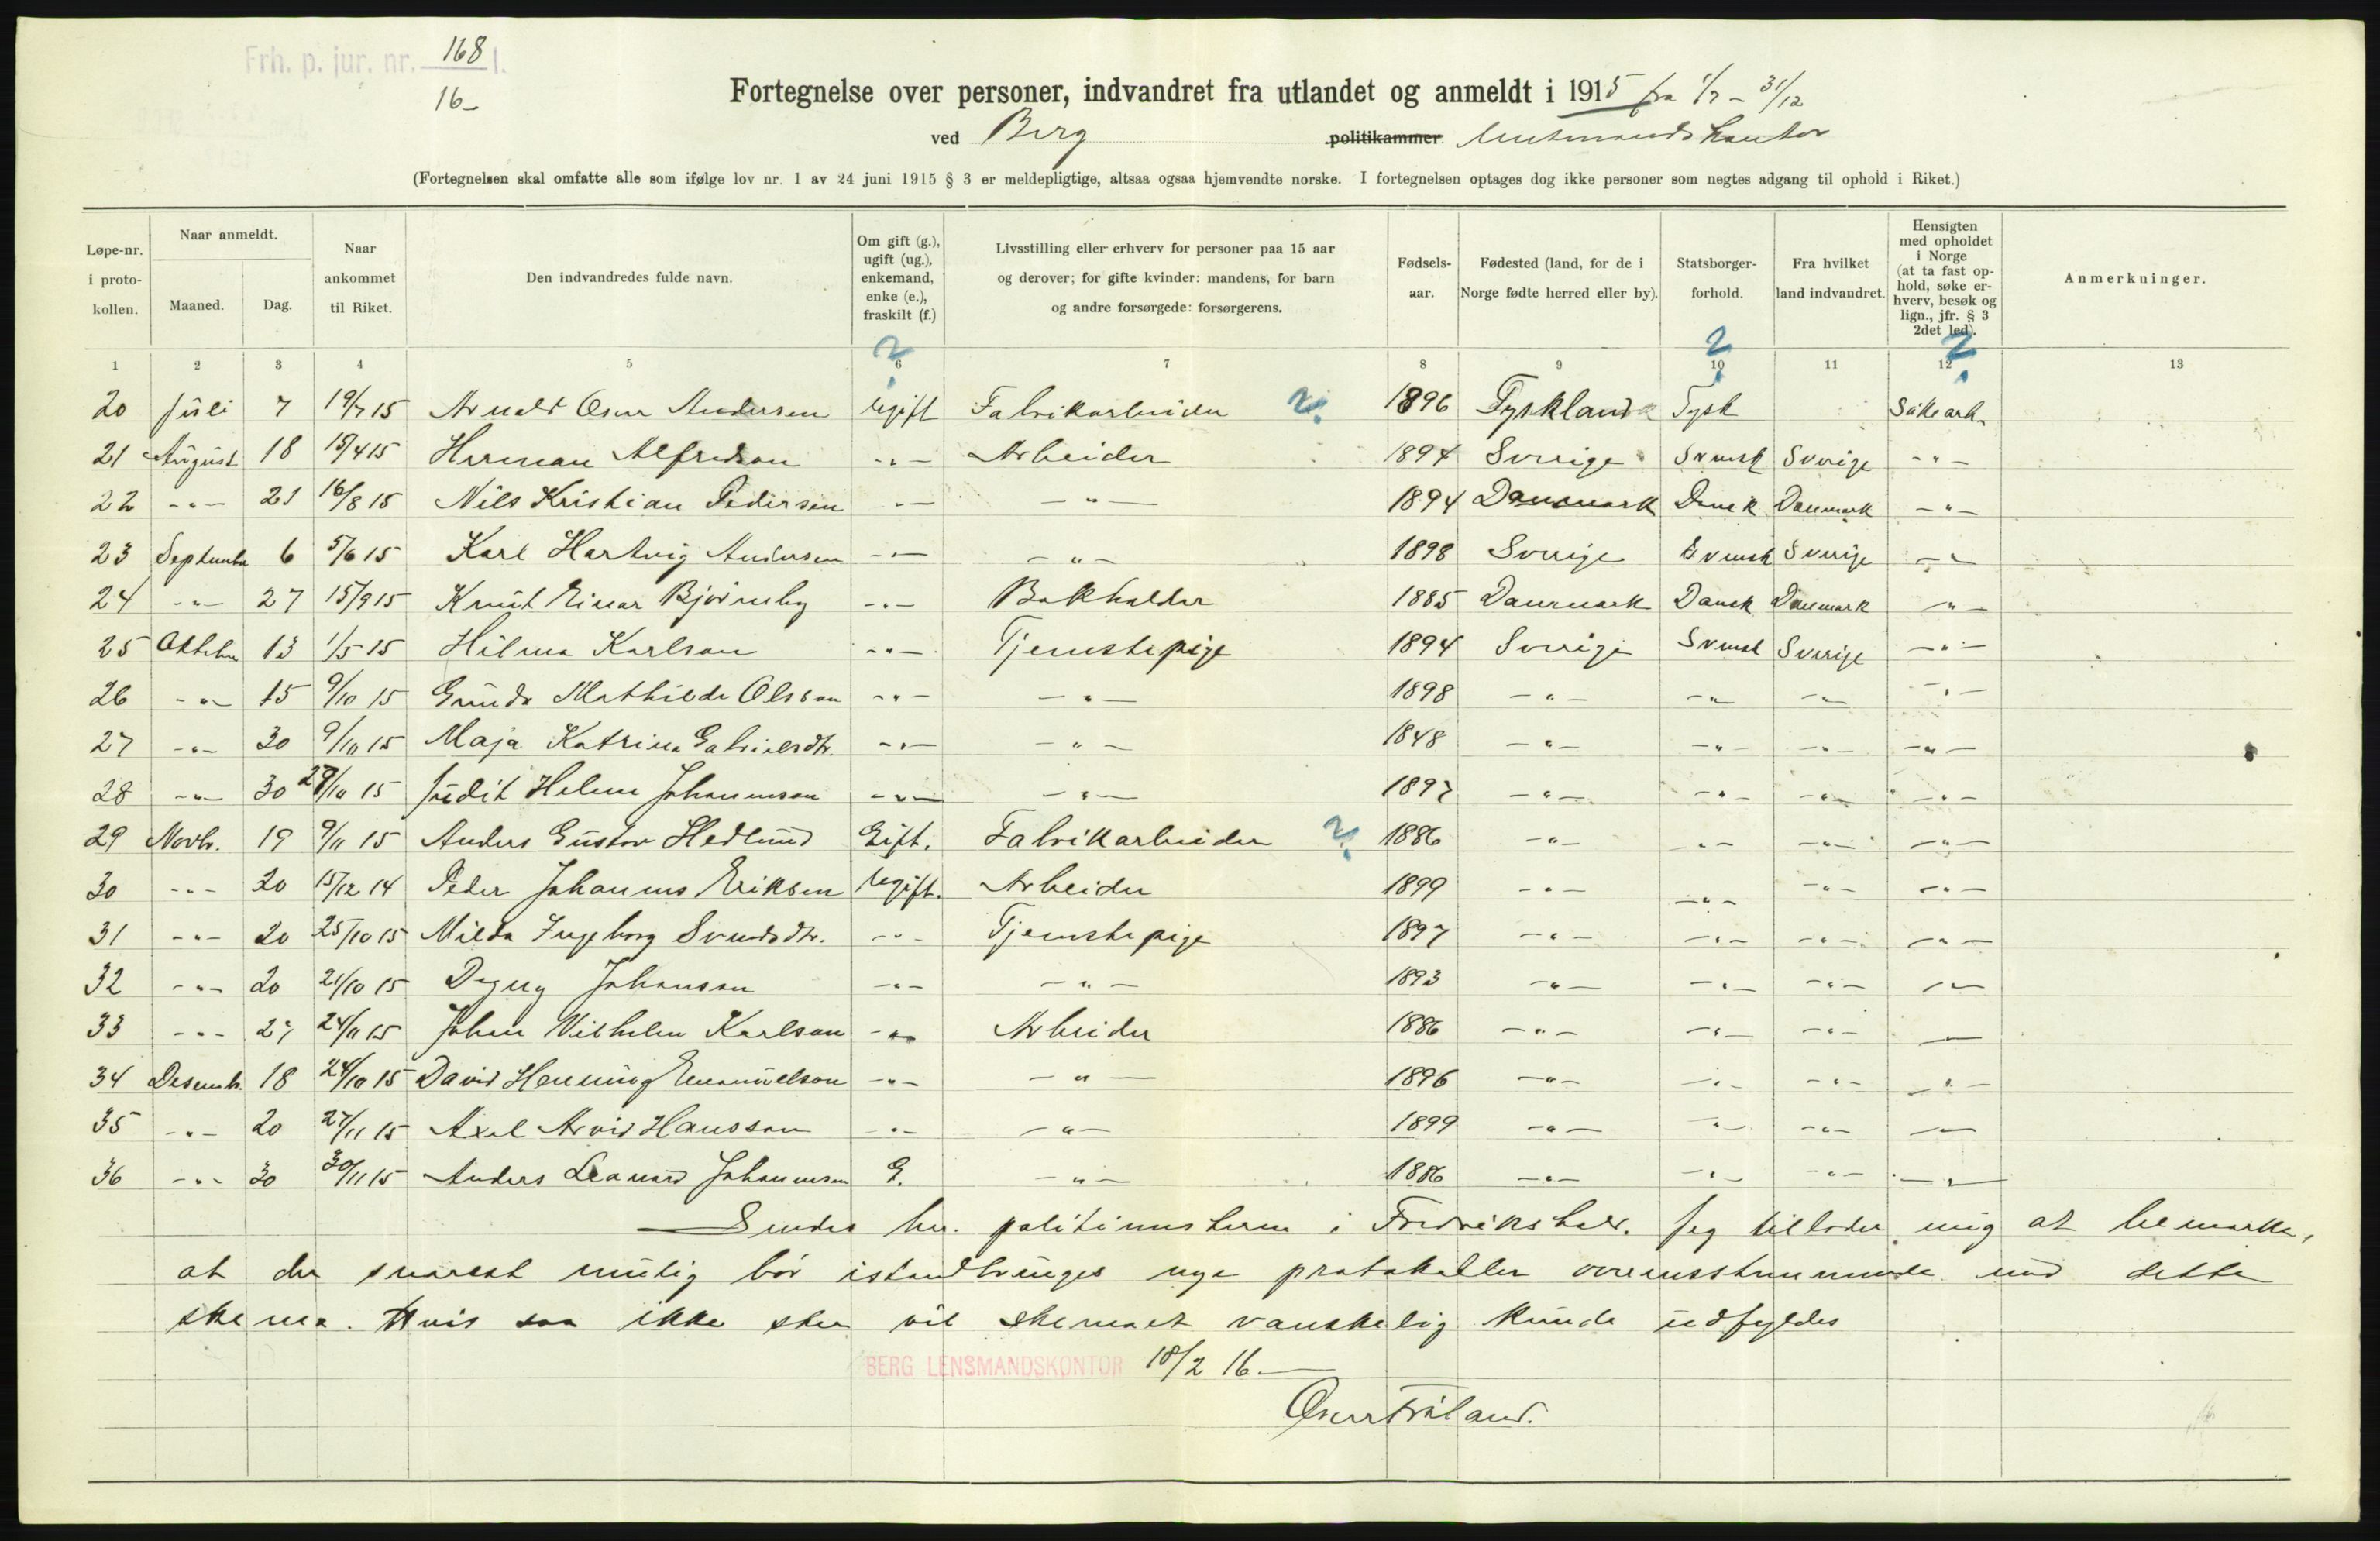 Frh. p. jur. nr. 168 1.
16-
Fortegnelse over personer, indvandret fra utlandet og anmeldt i 1915 fra 1/7 - 31/12
ved Berg politikammer
(Fortegnelsen skal omfatte alle som ifølge lov nr. 1 av 24 juni 1915 § 3 er meldepligtige, altsaa ogsaa hjemvendte norske. I fortegnelsen optages dog ikke personer som negtes adgang til ophold i Riket.)
Løpe-nr. i proto-kollen.
Naar anmeldt.
Maaned. Dag.
Naar ankommet til Riket.
Den indvandredes fulde navn.
Om gift (g.), ugift (ug.), enkemand, enke (e.), fraskilt (f.)
Livsstilling eller erhverv for personer paa 15 aar og derover; for gifte kvinder: mandens, for barn og andre forsørgede: forsørgerens.
Fødsels-aar.
Fødested (land, for de i Norge fødte herred eller by).
Statsborger-forhold.
Fra hvilket land indvandret.
Hensigten med opholdet i Norge (at ta fast op-hold, søke er-hverv, besøk og lign., jfr. § 3 2det led).
Anmerkninger.
1 2 3 4 5 6 7 8 9 10 11 12 13
20 Juli 7 19/7 15 Arnold Oscar Andersen Ugift Fabrikarbeider 1896 Tyskland Tysk Søke arb.
21 August 18 15/4 15 Herman Alfredson -"- Arbeider 1894 Sverige Svensk Sverige -"-
22 -"- 21 16/8 15 Nils Kristian Pedersen -"- -"- 1894 Danmark Dansk Danmark -"-
23 September 6 5/6 15 Karl Hartvig Andersen -"- -"- 1898 Sverige Svensk Sverige -"-
24 -"- 27 15/9 15 Knut Einar Bjørneby -"- Bokholder 1885 Danmark Dansk Danmark -"-
25 Oktober 13 1/5 15 Hilma Karlson -"- Tjenestepige 1894 Sverige Svensk Sverige -"-
26 -"- 15 9/10 15 Gunda Mathilde Olsson -"- -"- 1898 -"- -"- -"- -"-
27 -"- 30 9/10 15 Maja Katrina Gabrielsdtr. -"- -"- 1848 -"- -"- -"- -"-
28 -"- 30 29/10 15 Judit Helene Johannson -"- -"- 1897 -"- -"- -"- -"-
29 Novbr. 19 9/11 15 Anders Gustav Hedlund Gift. Fabrikarbeider 1886 -"- -"- -"- -"-
30 -"- 20 15/12 14 Peder Johannes Eriksen Ugift. Arbeider 1899 -"- -"- -"- -"-
31 -"- 20 25/10 15 Milda Ingeborg Svendsdtr. -"- Tjenestepige 1897 -"- -"- -"- -"-
32 -"- 20 21/10 15 Dagny Johanson -"- -"- 1893 -"- -"- -"- -"-
33 -"- 27 24/11 15 Johan Vilhelm Karlson -"- Arbeider 1886 -"- -"- -"- -"-
34 Desemb. 18 24/10 15 David Henning Emanuelson -"- -"- 1896 -"- -"- -"- -"-
35 -"- 20 27/11 15 Axel Arvid Hansson -"- -"- 1899 -"- -"- -"- -"-
36 -"- 30 30/11 15 Anders Leonard Johannson G. -"- 1886 -"- -"- -"- -"-
Sendes hr. politimesteren i Fredrikshald. Jeg tillader mig at bemærke,
at der snarest mulig bør istandbringes nye protokoller overensstemmende med dette
skema. Hvis saa ikke sker vil skemaet vanskelig kunde udfyldes
BERG LENSMANDSKONTOR 18/2 16.